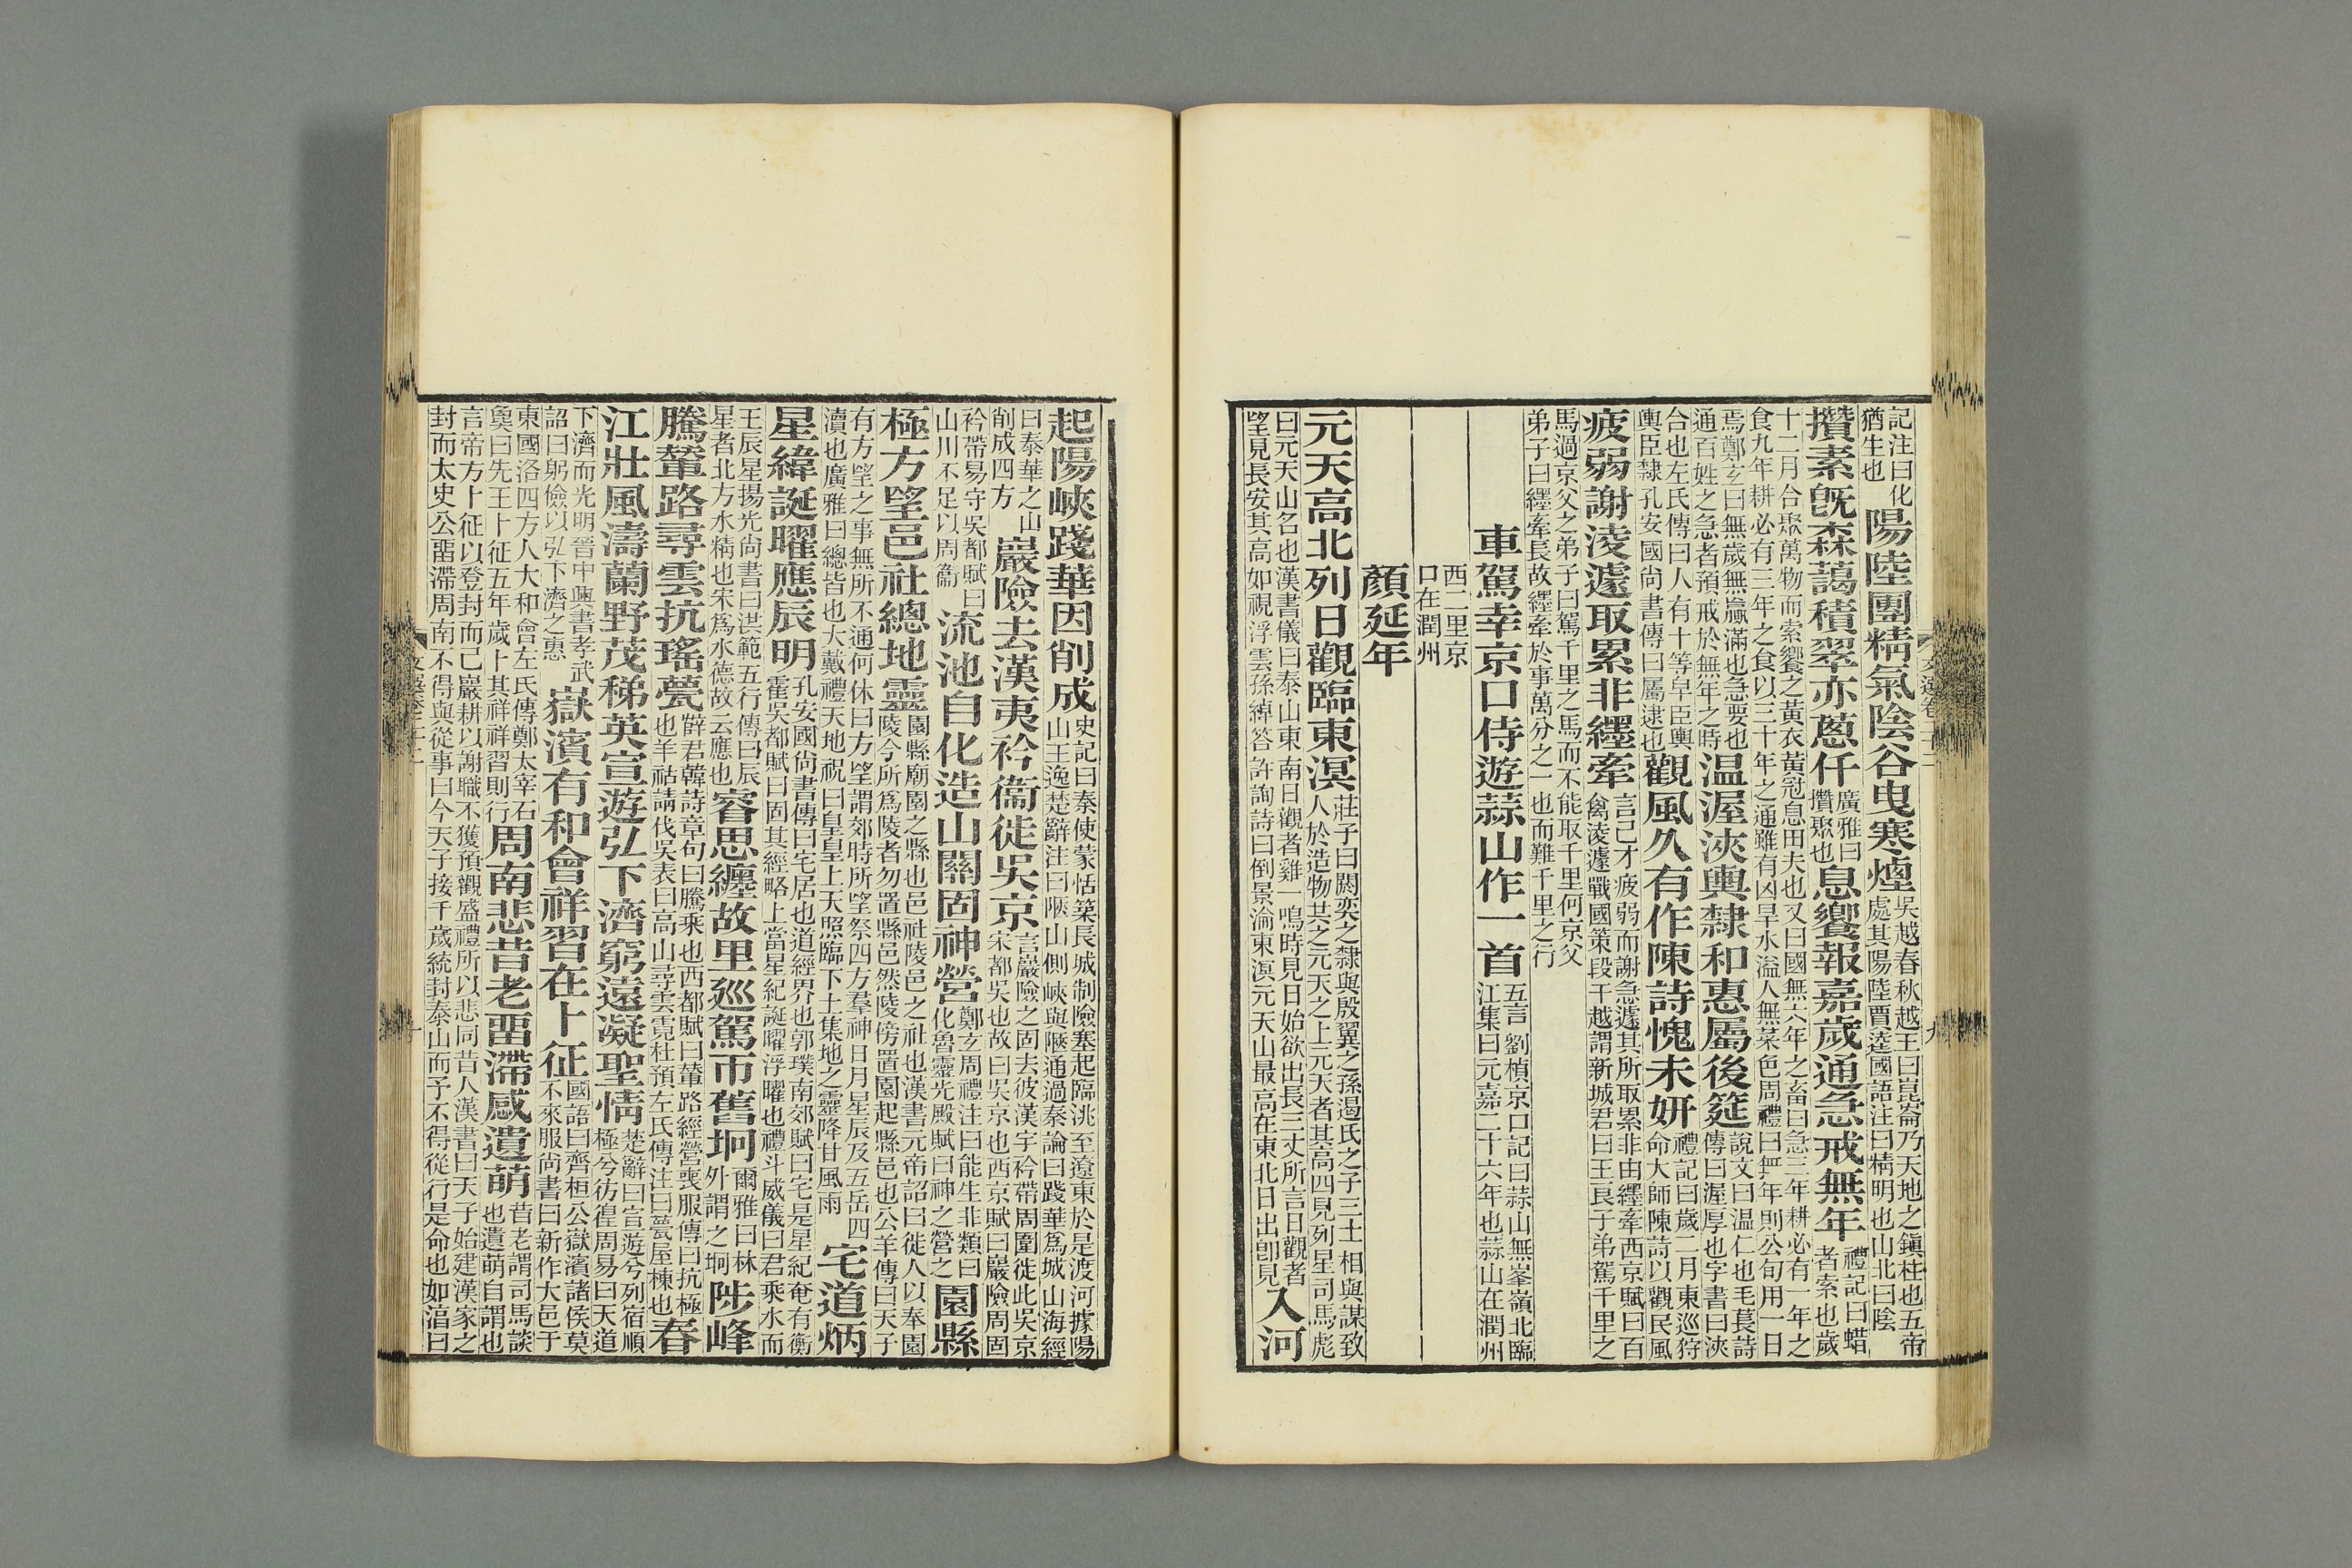 記注曰化猶生也陽陸團精氣陰谷曳寒煙吳越春秋越王曰崑崙乃天地之鎭柱也五帝處其陽陸賈逵國語注曰精明也山北曰陰
攢素旣森藹積翠亦葱仟廣雅曰攢聚也息饗報嘉歲通急戒無年禮記曰蜡者索也歲
十二月合聚萬物而索饗之黃衣黃冠息田夫也又曰國無六年之畜曰急三年耕必有一年之食九年耕必有三年之食以三十年之通雖有凶旱水溢人無菜色周禮曰無年則公旬用一日
焉鄭玄曰無歲無贏滿也急要也通百姓之急者預戒於無年之時温渥浹輿隸和惠屬後筵說文曰温仁也毛萇詩傳曰渥厚也字書曰浹
合也左氏傳曰人有十等皁臣輿輿臣隸孔安國尚書傳曰屬逮也觀風久有作陳詩愧未妍禮記曰歲二月東巡狩命大師陳詩以觀民風
疲弱謝淩遽取累非纆牽言己才疲弱而謝急遽其所取累非由纆牽西京賦曰百禽淩遽戰國策段干越謂新城君曰王良子弟駕千里之
馬過京父之弟子曰駕千里之馬而不能取千里何京父弟子曰纆牽長故纆牽於事萬分之一也而難千里之行
車駕幸京口侍遊蒜山作一首五言 劉楨京口記曰蒜山無峯嶺北臨江集曰元嘉二十六年也蒜山在潤州
西二里京口在潤州
顏延年
元天高北列日觀臨東溟莊子曰閼奕之隸與殷翼之孫遏氏之子三士相與謀致人於造物共之元天之上元天者其高四見列星司馬彪
曰元天山名也漢書儀曰泰山東南曰觀者雞一鳴時見日始欲出長三丈所言日觀者望見長安其高如視浮雲孫綽答許詢詩曰倒景淪東溟元天山最高在東北日出卽見入河
文選卷二十二
九
起陽峽踐華因削成史記曰秦使蒙恬築長城制險塞起臨洮至遼東於是渡河據陽山王逸楚辭注曰陿山側峽與陿通過秦論曰踐華爲城山海經
曰泰華之山削成四方巖險去漢夷衿衞徙吳京言巖險之固去彼漢宇衿帶周圍徙此吳京宋都吳也故曰吳京也西京賦曰巖險周固
衿帶易守吳都賦曰山川不足以周衞流池自化造山關固神營鄭玄周禮注曰能生非類曰化魯靈光殿賦曰神之營之園縣
極方望邑社總地靈園縣廟園之縣也邑社陵邑之社也漢書元帝詔曰徙人以奉園陵今所爲陵者勿置縣邑然陵傍置園起縣邑也公羊傳曰天子
有方望之事無所不通何休曰方望謂郊時所望祭四方羣神日月星辰及五岳四瀆也廣雅曰總皆也大戴禮天地祝曰皇皇上天照臨下土集地之靈降甘風雨宅道炳
星緯誕曜應辰明孔安國尚書傳曰宅居也道經界也郭璞南郊賦曰宅是星紀奄有衡霍吳都賦曰固其經略上當星紀誕曜浮曜也禮斗威儀曰君乘水而
王辰星揚光尚書曰洪範五行傳曰辰星者北方水精也宋爲水德故云應也睿思纏故里巡駕帀舊坰爾雅曰林外謂之坰陟峰
騰輦路尋雲抗瑤甍薛君韓詩章句曰騰乘也西都賦曰輦路經營喪服傳曰抗極也羊祜請伐吳表曰高山尋雲霓杜預左氏傳注曰甍屋棟也春
江壯風濤蘭野茂稊英宣遊弘下濟窮遠凝聖情楚辭曰宣遊兮列宿順極兮彷徨周易曰天道
下濟而光明晉中興書孝武詔曰躬儉以弘下濟之惠嶽濱有和會祥習在卜征國語曰齊桓公嶽濱諸侯莫不來服尚書曰新作大邑于
東國洛四方人大和會左氏傳鄭太宰石㚟曰先王卜征五年歲卜其祥祥習則行周南悲昔老畱滯感遺萌昔老謂司馬談也遺萌自謂也
言帝方卜征以登封而己巖耕以謝職不獲預觀盛禮所以悲同昔人漢書曰天子始建漢家之封而太史公畱滯周南不得與從事曰今天子接千歲統封泰山而予不得從行是命也如湻曰